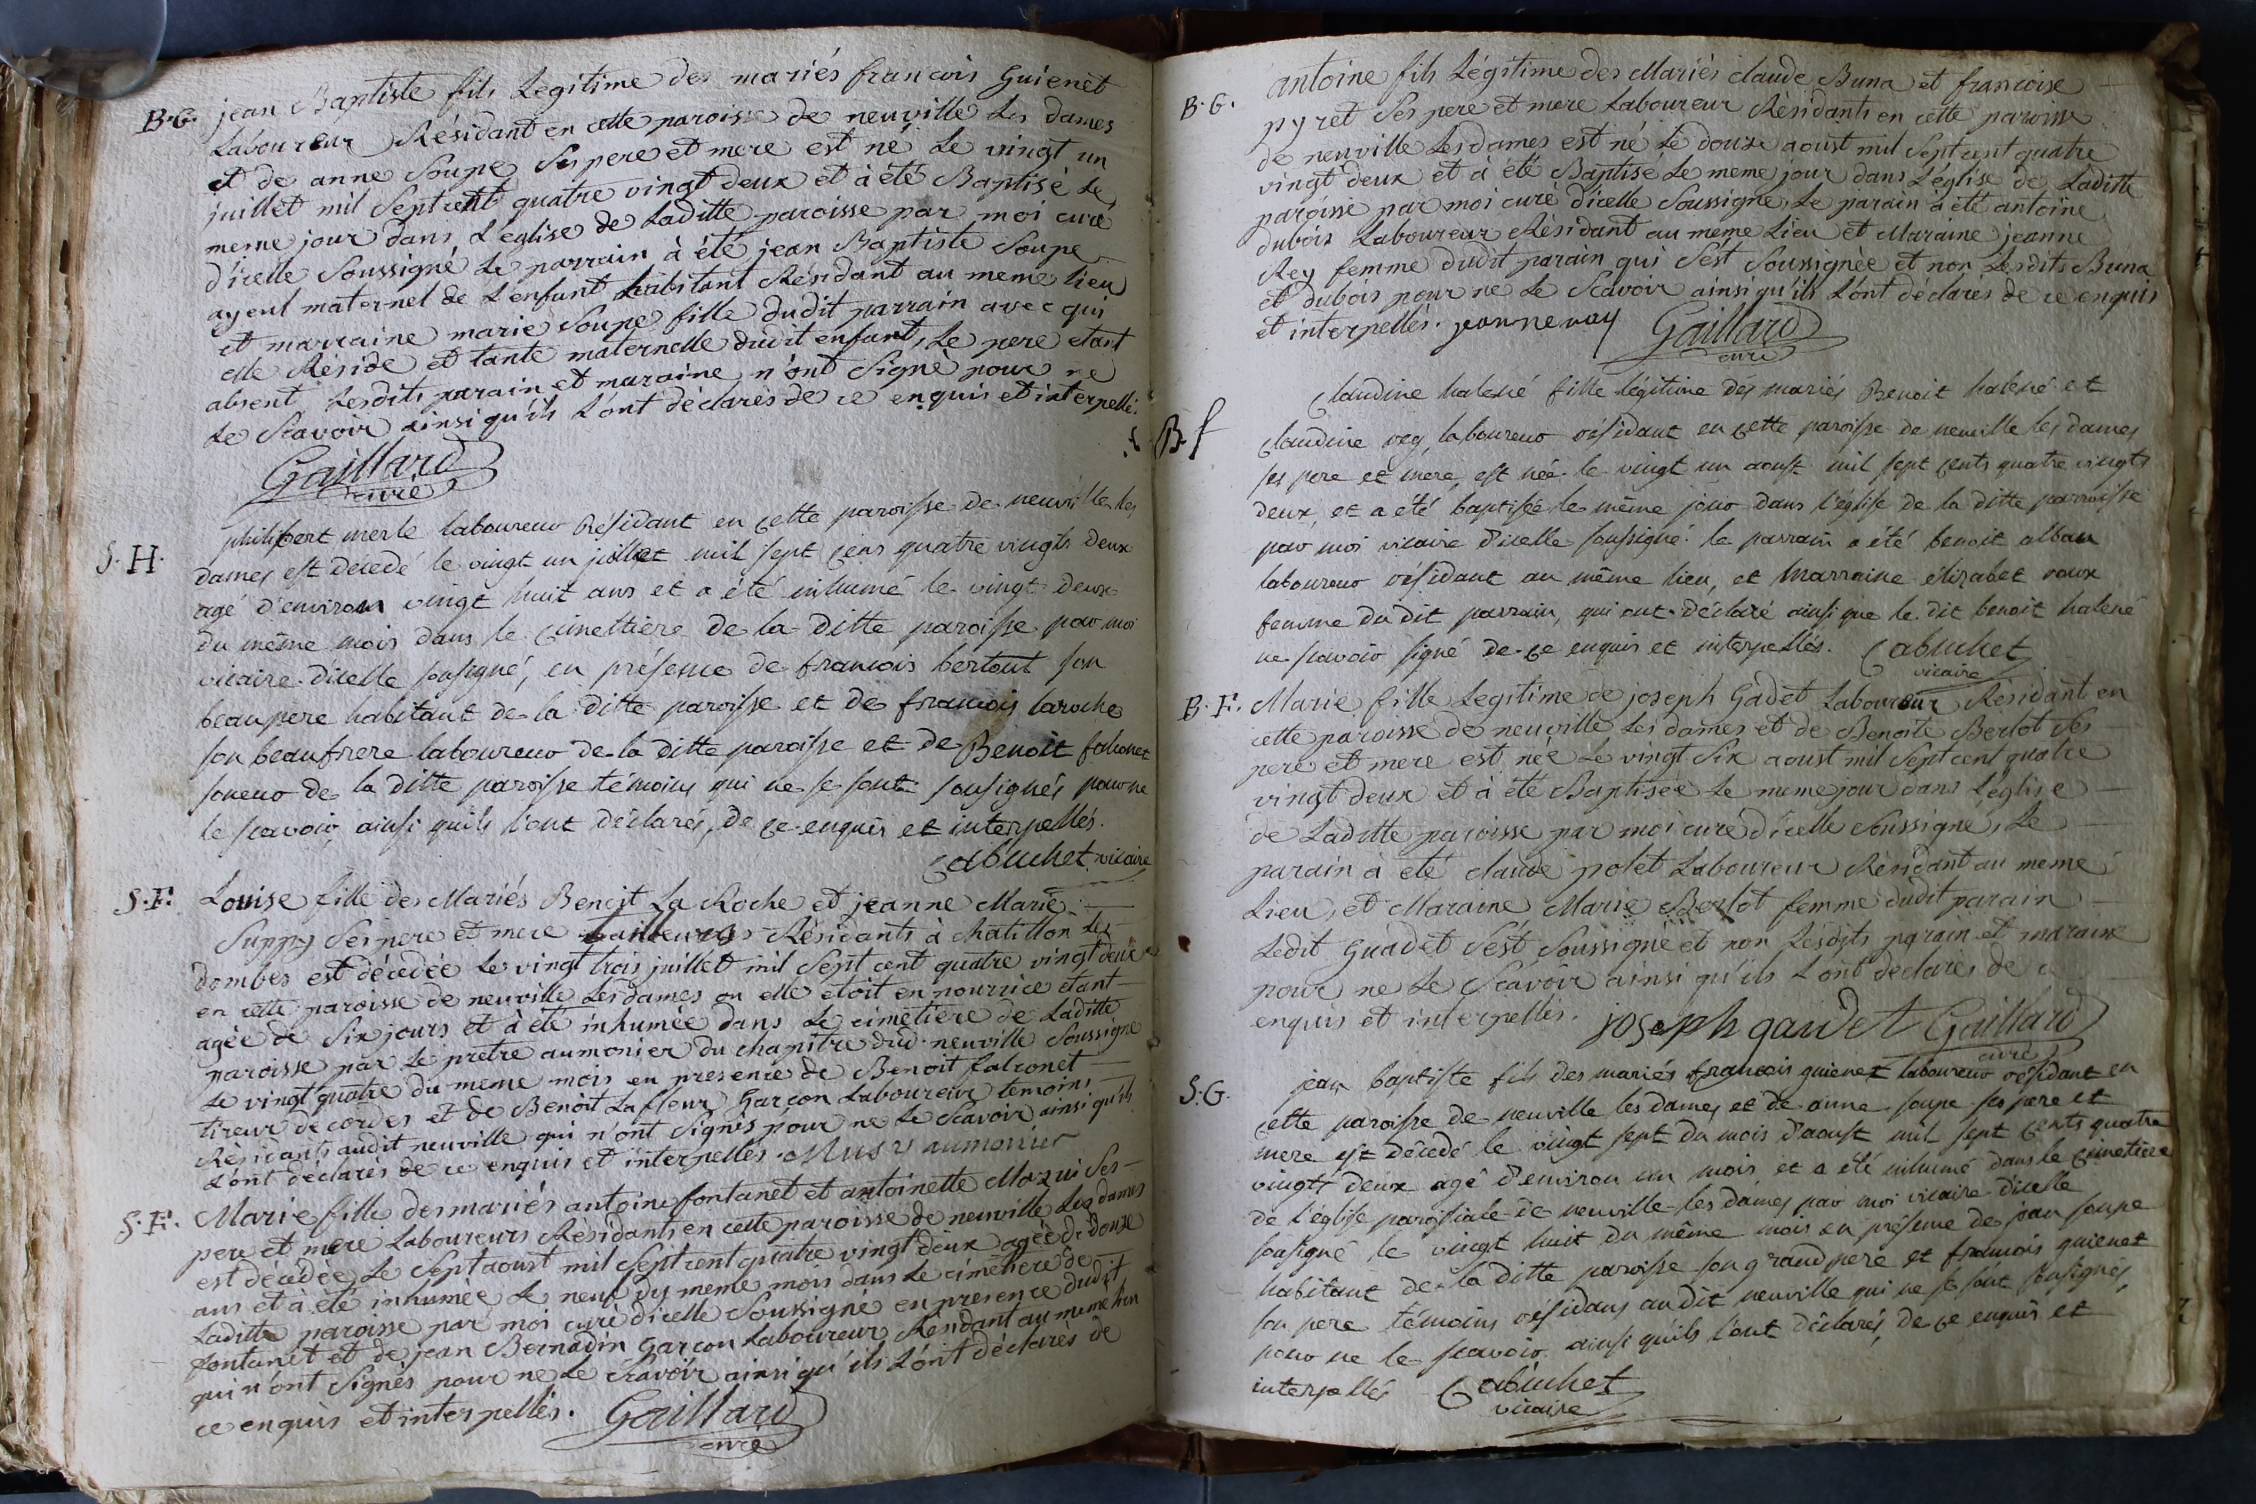 B.G. jean Baptiste fils Legitime des mariés francois Guienet
Laboureur Résidant en cette paroisse de neuville Les dames
et de anne Soupe Ses pere et mere est né Le vingt un
juillet mil Sept cent quatre vingt deux et à été Baptisé Le
meme jour dans L'eglise de Laditte paroisse par moi curé
d'icelle Soussigné Le parrain à été jean Baptiste Soupe
ayeul maternel de L'enfant habitant Résidant au meme Lieu
et marraine marie Soupe fille dudit parrain avec qui
elle Réside et tante maternelle dudit enfant, Le pere etant
absent Lesdits parain et maraine n'ont Signé pour ne
Le Scavoir ainsi qu'ils L'ont déclarés de ce enquis et interpellés.
Gaillard
curé
S.H. philibert merle laboureur Résidant en cette paroisse de neuville les
dames est décédé le vingt un juillet mil sept cens quatre vingts deux
agé d'environ vingt huit ans et a été inhumé le vingt deux
du même mois dans le cimettière de la ditte paroisse par moi
vicaire dicelle sousigné, en présence de francois bertout son
beaupere habitant de la ditte paroisse et de francois laroche
son beaufrere laboureur de la ditte paroisse et de Benoit falconet
soneur de la ditte paroisse témoins qui ne se sont sousignés pour ne
le scavoir, ainsi quils l'ont déclarés, de ce enquis et interpellés.
Cabuchet vicaire
S.F. Louise fille des Mariés Benoit La Roche et jeanne Marie
Suppy Ses pere et mere tailleurs Résidants à Chatillon Les
dombes est décedée Le vingt trois juillet mil Sept cent quatre vingt deux
en cette paroisse de neuville Les dames ou elle etoit en nourrice etant
agée de Six jours et à été inhumée dans Le cimetiere de Laditte
paroisse par Le pretre aumonier du chapitre dud. neuville Soussigné
Le vingt quatre du meme mois en presence de Benoit falconet
tireur de cordes et de Benoit Lafleur Garçon Laboureur temoins
Résidants audit neuville qui n'ont Signés pour ne Le Scavoir ainsi qu'ils
L'ont déclarés de ce enquis et interpellés. Musy aumonier
S.F. Marie fille des mariés antoine fontanet et antoinette Mazui Ses
pere et mere Laboureurs Résidants en cette paroisse de neuville Les dames
est décédée Le Sept aoust mil Sept cent quatre vingt deux agée de Douze
ans et à été inhumée Le neuf du meme mois dans Le cimetiere de
Laditte paroisse par moi curé dicelle Soussigné en presence dudit
fontanet et de jean Bernadin Garçon Laboureur Residant au meme Lieu
qui n'ont Signés pour ne Le Scavoir ainsi qu'ils L'ont déclarés de
ce enquis et interpellés. Gaillard
curé
B.G. antoine fils Légitime des Mariés claude Buna et francoise
pyret Ses pere et mere Laboureur Résidants en cette paroisse
de neuville Les dames est né Le douze aoust mil Sept cent quatre
vingt deux et à été Baptisé Le meme jour dans L'église de Laditte
paroisse par moi curé dicelle Soussigné, Le parain à été antoine
dubois Laboureur Résidant au meme Lieu et Maraine jeanne
Rey femme dudit parain qui S'est Soussignée et non Lesdits Buna
et dubois pour ne Le Scavoir ainsi qu'ils L'ont déclarés de ce enquis
et interpellés. jeanne ray Gaillard
curé
B.f Claudine halené fille légitime des mariés Benoit halené et
claudine rey, laboureur résidant en cette paroisse de neuville les dames
ses pere et mere, est née le vingt un aoust mil sept cents quatre vingts
deux, et a été baptisée le même jour dans l'église de la ditte parroisse
par moi vicaire d'icelle soussigné. le parrain a été benoit alban
laboureur résidant au même lieu, et marraine élizabet roux
femme du dit parrain, qui ont déclaré ainsi que le dit benoit halené
ne scavoir signé de ce enquis et interpellés. Cabuchet
vicaire
B.F. Marie fille Legitime de joseph Gadet Laboureur Résidant en
cette paroisse de neuville Les dames et de Benoite Berlot Ses
pere et mere est née Le vingt Six aoust mil Sept cent quatre
vingt deux et à été Baptisée Le meme jour dans L'église
de Laditte paroisse par moi curé dicelle Soussigné, Le
parain à été claude polet Laboureur Résidant au meme
Lieu, et Maraine Marie Berlot femme dudit parain
Ledit Guadet S'est Soussigné et non Lesdits parain et maraine
pour ne Le Scavoir ainsi qu'ils L'ont déclarés de ce
enquis et interpellés. joseph gaudet Gaillard
curé
S.G. jean baptiste fils des mariés francois guienet laboureur résidant en
cette paroisse de neuville les dames et de anne soupe ses pere et
mere est décédé le vingt sept du mois d'aoust mil sept cents quatre
vingts deux agé d'environ un mois et a été inhumé dans le cimetiere
de l'église paroissiale de neuville les dames par moi vicaire dicelle
sousigné le vingt huit du même mois en présence de jean soupe
habitant de la ditte paroisse son grand pere et francois guienet
son pere témoins résidans audit neuville qui ne se sont sousignés
pour ne le scavoir ainsi quils l'ont déclarés, de ce enquis et
interpellés Cabuchet
vicaire